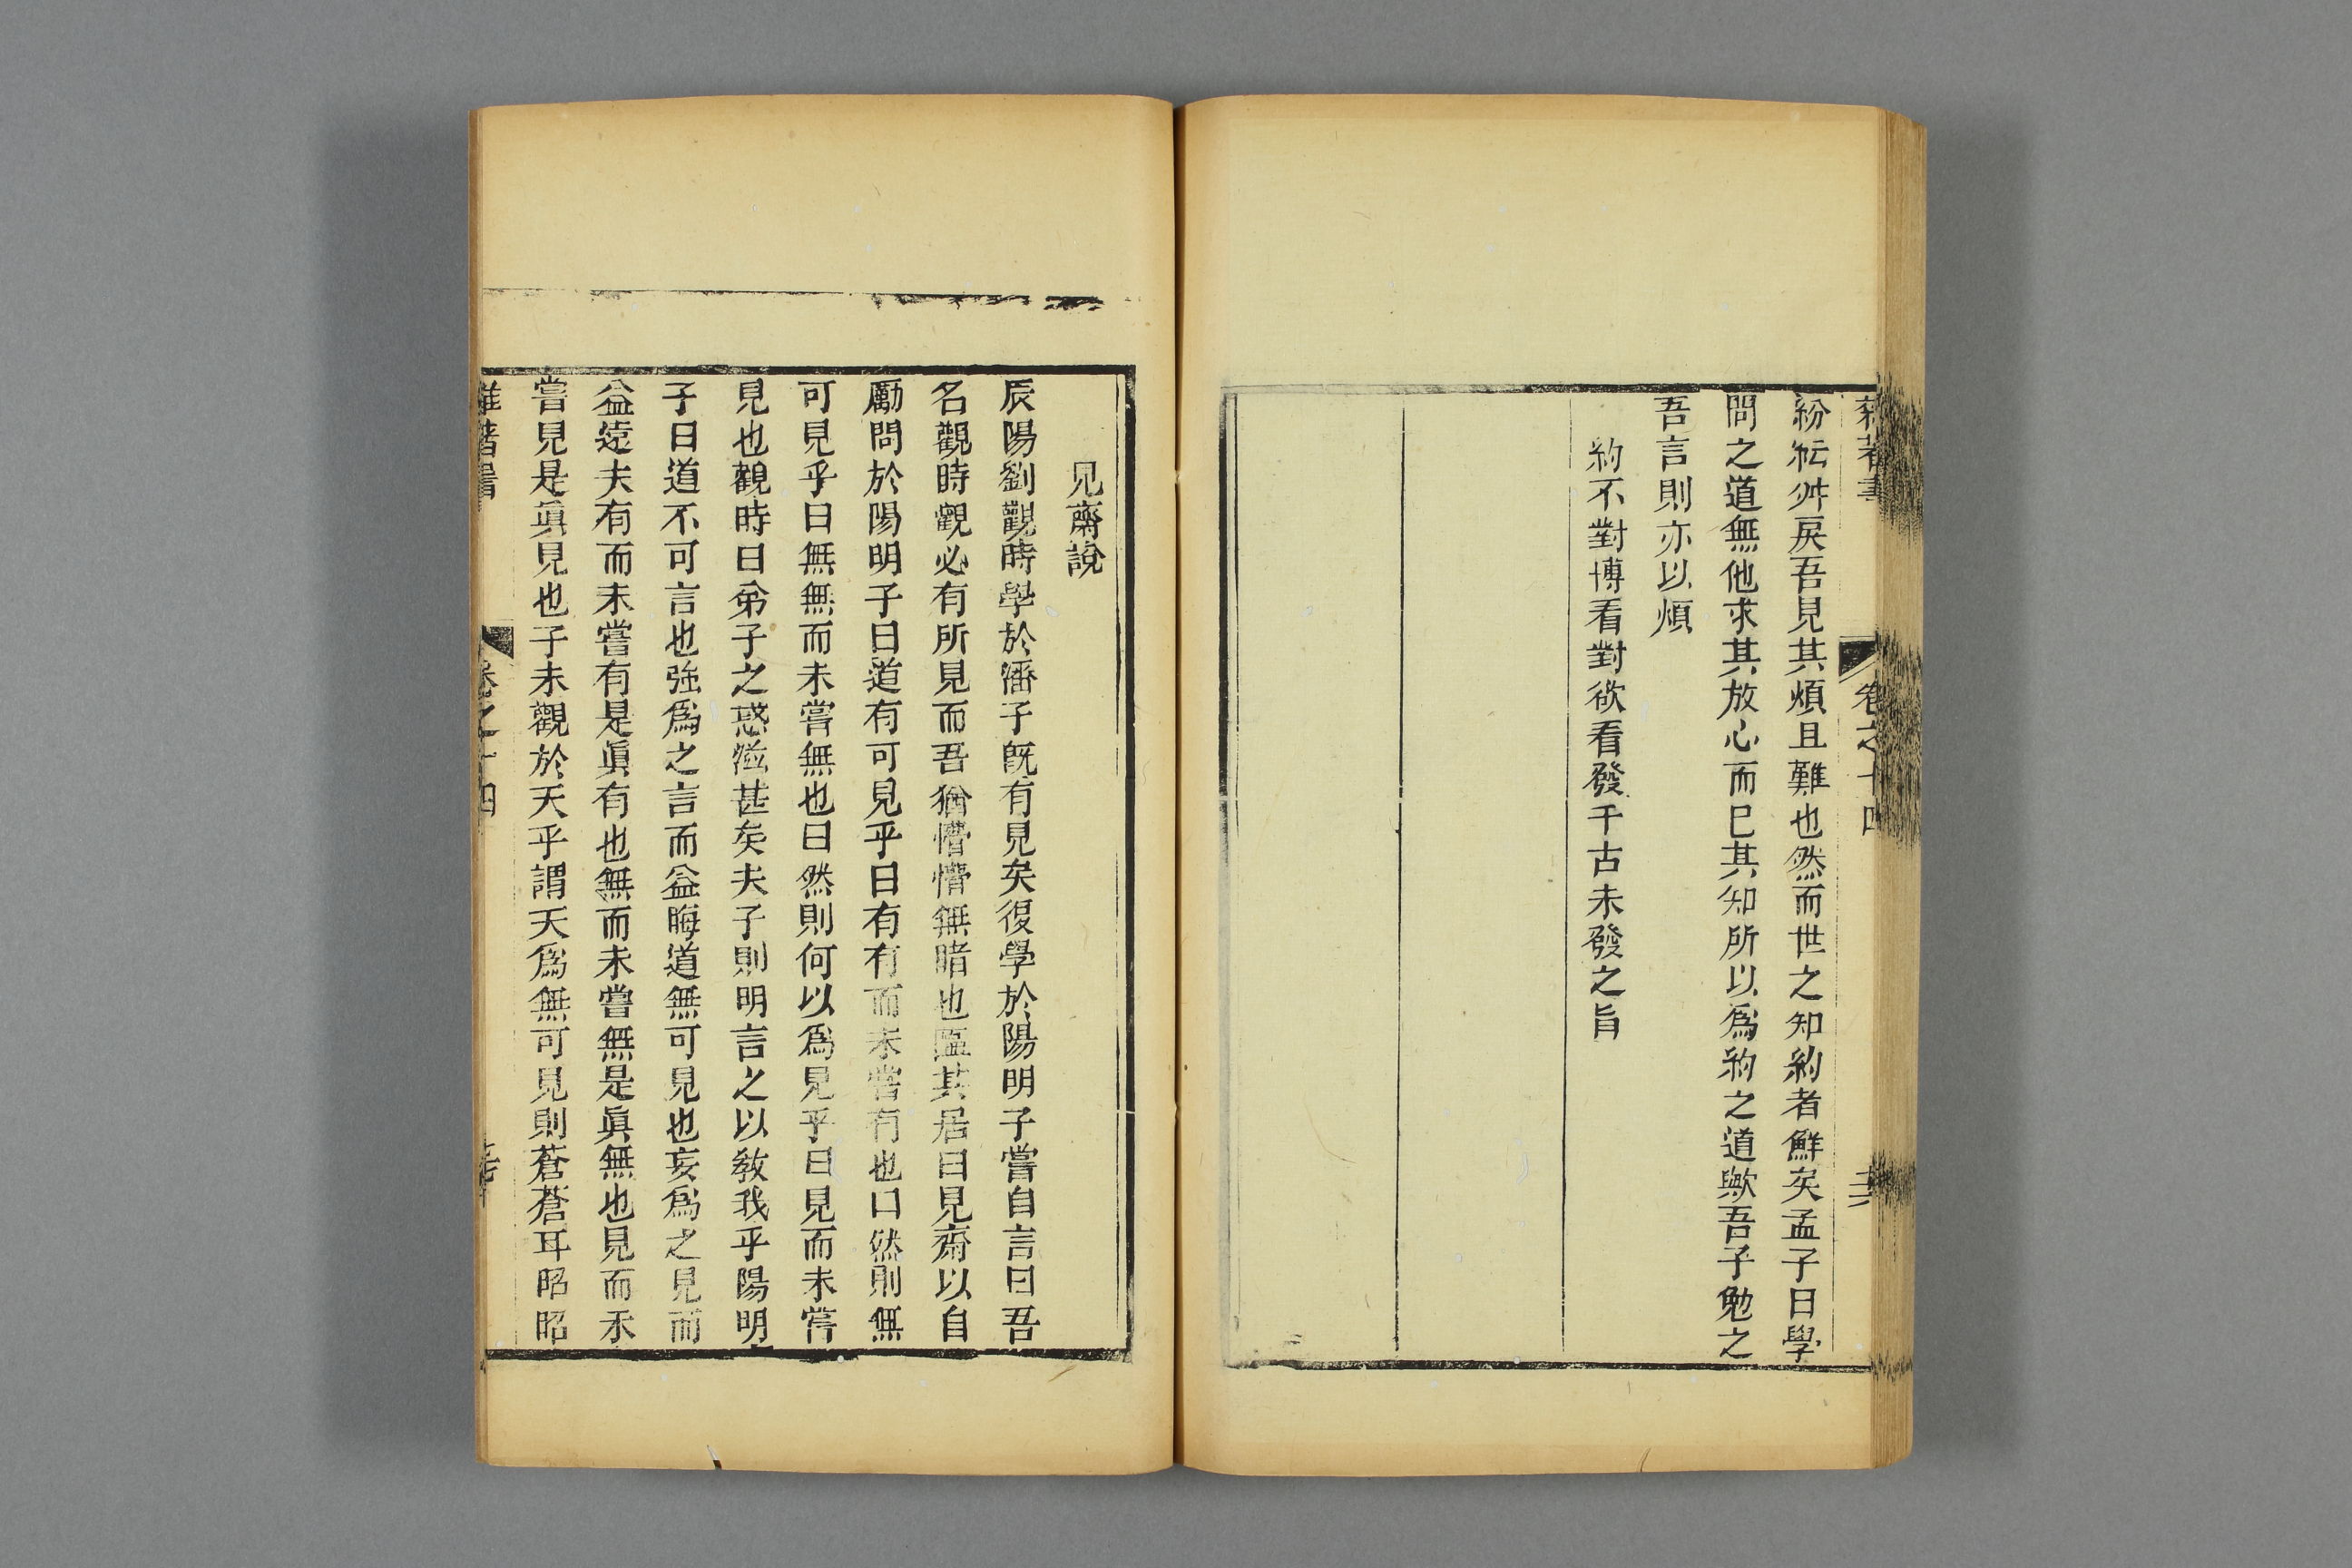 雜著書 卷之十四
紛紜舛戾吾見其煩且難也然而世之知約者鮮矣孟子曰學
問之道無他求其放心而已其知所以爲約之道歟吾子勉之
吾言則亦以煩
約不對博看對欲看發千古未發之旨
見齋說
辰陽劉觀時學於潘子旣有見矣復學於陽明子嘗自言曰吾
名觀時觀必有所見而吾猶懵懵無睹也匾其居曰見齋以自
勵問於陽明子曰道有可見乎曰有有而未嘗有也曰然則無
可見乎曰無無而未嘗無也曰然則何以爲見乎曰見而未嘗
見也觀時曰弟子之惑滋甚矣夫子則明言之以敎我乎陽明
子曰道不可言也强爲之言而益晦道無可見也妄爲之見而
益遠夫有而未嘗有是眞有也無而未嘗無是眞無也見而未
嘗見是眞見也子未觀於天乎謂天爲無可見則蒼蒼耳昭昭
雜著書 卷之十四